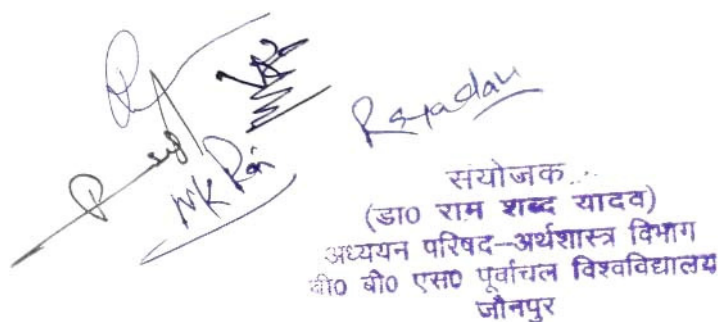 MK Rai
RSYadav
संयोजक
(डा0 राम शब्द यादव)
अध्ययन परिषद–अर्थशास्त्र विभाग
वी0 बी0 एस0 पूर्वांचल विश्वविद्यालय
जौनपुर